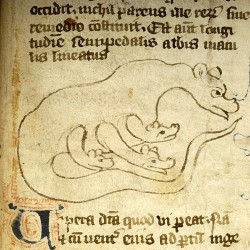 occidit. nichil parens ille rerū sine
remedio cōstituit. Est aut̄ longi
tudine semipedalis albis macu
lis lineatus
Vipera dc̄a quod vi pariat. Nā
& cum uent̄ eius ad ptum inge